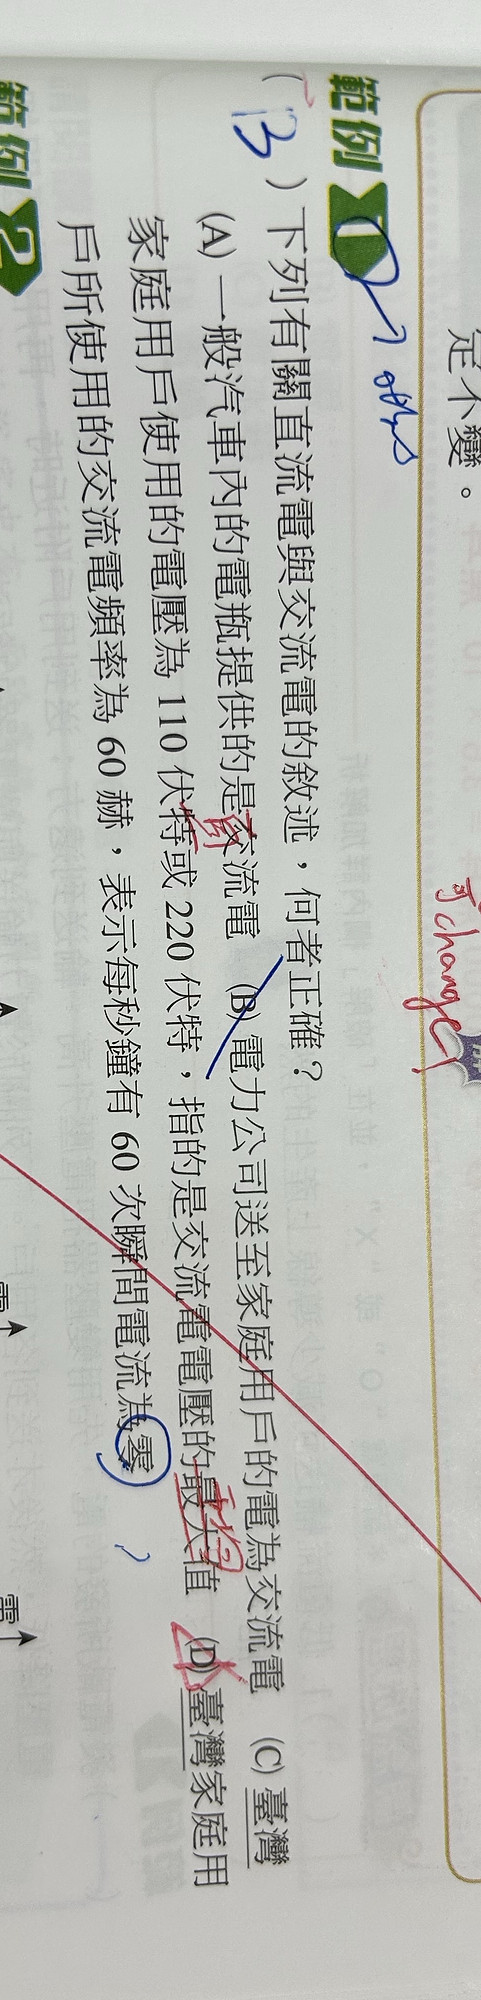 定不變。
可change
範例 1
( B ) 下列有關直流電與交流電的敘述，何者正確？
(A) 一般汽車內的電瓶提供的是交流電 (B) 電力公司送至家庭用戶的電為交流電 (C) 臺灣
直
家庭用戶使用的電壓為 110 伏特或 220 伏特，指的是交流電電壓的最大值 (D) 臺灣家庭用
平均
戶所使用的交流電頻率為 60 赫，表示每秒鐘有 60 次瞬間電流為零
?
範例 2
電
電